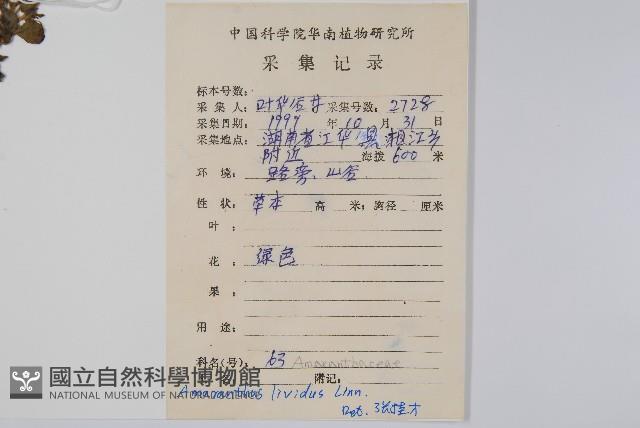 中国科学院华南植物研究所
采集记录
标本号数:
采集人: 叶华谷等 采集号数: 2728
采集日期: 1997 年 10 月 31 日
采集地点: 湖南省江华县湘江乡
附近 海拨 600 米
环境: 路旁、山谷
性状: 草本 高 米; 胸径 厘米
叶:
花: 绿色
果:
用途:
科名(号): 63 Amaranthaceae
附记:
國立自然科學博物館
NATIONAL MUSEUM OF NATURAL SCIENCE
Amaranthus lividus Linn.
Det. 张桂才